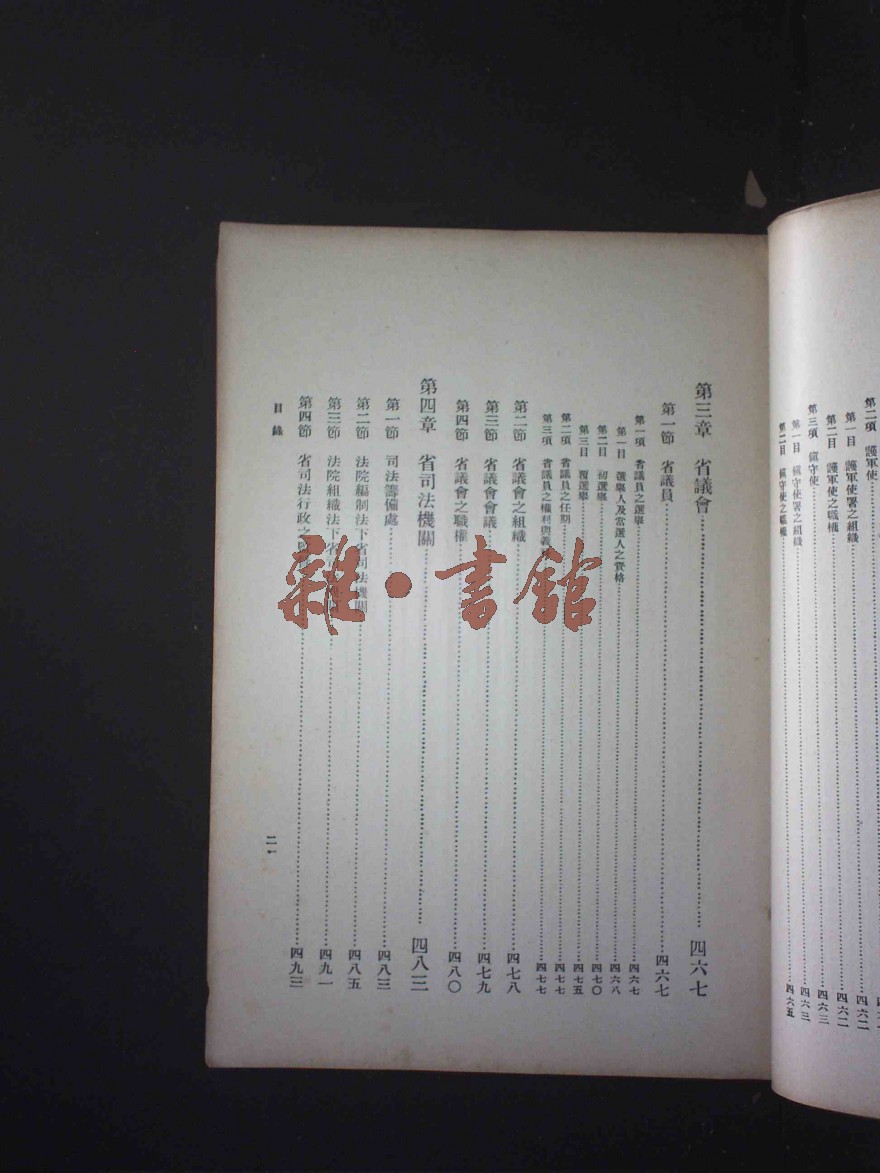 第二項 護軍使
第一目 護軍使署之組織 四六二
第二目 護軍使之職權 四六二
第三項 鎮守使 四六三
第一目 鎮守使署之組織 四六三
第二目 鎮守使之職權 四六五
第三章 省議會 四六七
第一節 省議員 四六七
第一項 省議員之選舉 四六七
第一目 選舉人及當選人之資格 四六八
第二目 初選舉 四七〇
第三目 覆選舉 四七五
第二項 省議員之任期 四七七
第三項 省議員之權利與義 四七七
第二節 省議會之組織 四七八
第三節 省議會會議 四七九
第四節 省議會之職權 四八〇
第四章 省司法機關 四八三
第一節 司法籌備處 四八三
第二節 法院編制法下省司法機關 四八五
第三節 法院組織法下省 四九一
第四節 省司法行政之 四九三
目錄
雜·書館